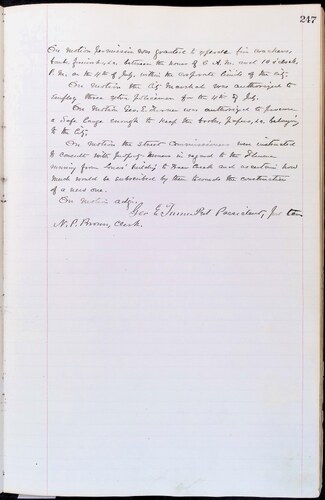 247
On motion permission was granted to explode fire crackers,
between the hours of 6 A.M. and 10 o'clock
P.M. on the 4th of July, within the corporate limits of the city.
On Motion the City Marshal was authorized to
employ three extra policemen for the 4th of July.
On Motion Geo. E. was authorized to procure
a Safe large enough to keep the books, papers, &c belonging
to the City.
On motion the street Commissioner was instructed
to consult with in regard to the
running from building to Creek and ascertain how
much would be subscribed by them towards the construction
of a new one.
On Motion adj.
Geo E. President, pro tem
N. P. Brown, Clerk.